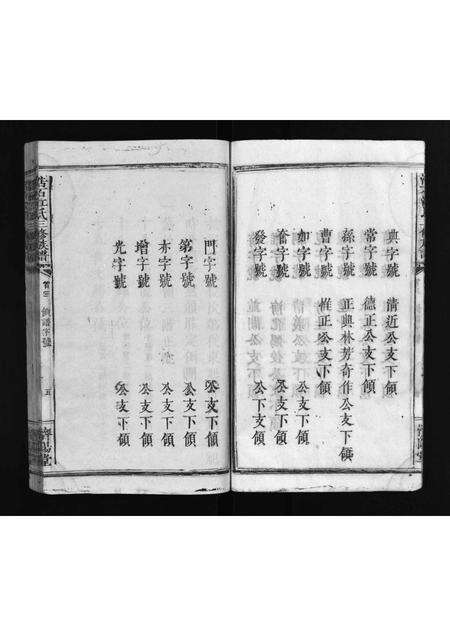 典字號 清近公支下領
常字號 德正公支下領
孫字號 正典林芳奇作公支下領
曹字號 惟正公支下領
如字號 公支下領
奮字號 公支下領
發字號 公下支領
門字號 公支下領
第字號 公支下領
亦字號 公支下領
增字號 公支下領
光字號 公支下領
江氏 修族譜
首三 領譜字號
五
濟陽堂